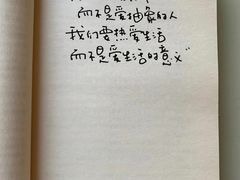 而不是爱抽象的人
我们要热爱生活
而不是爱生活的意义”